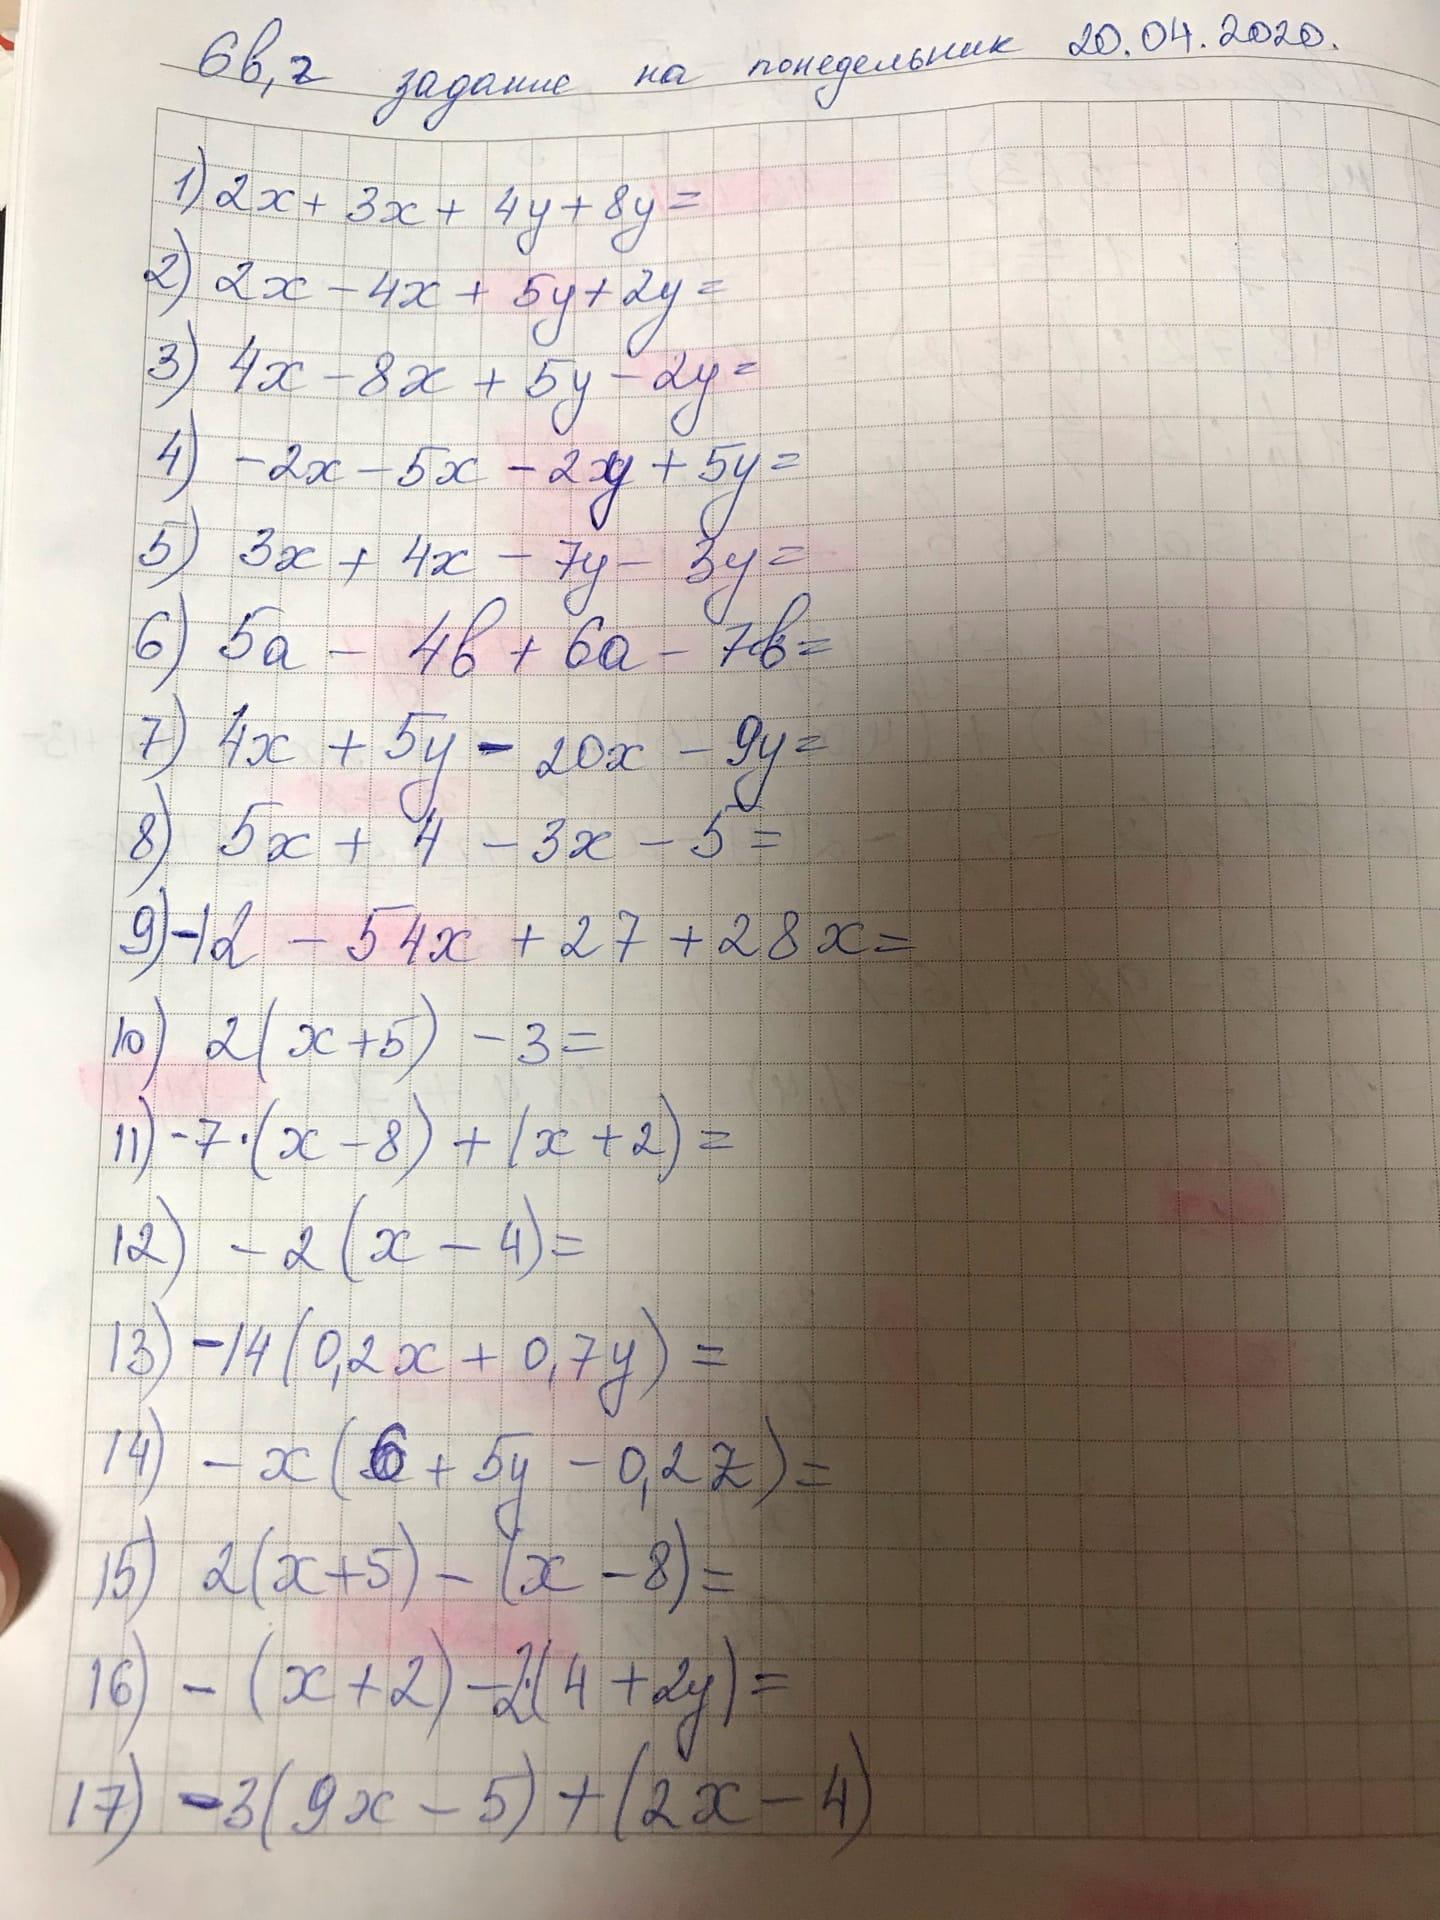 6в,г задание на понедельник 20.04.2020.
1) 2x + 3x + 4y + 8y =
2) 2x - 4x + 5y + 2y =
3) 4x - 8x + 5y - 2y =
4) -2x - 5x - 2y + 5y =
5) 3x + 4x - 7y - 3y =
6) 5a - 4b + 6a - 7b =
7) 4x + 5y - 20x - 9y =
8) 5x + 4 - 3x - 5 =
9) -12 - 54x + 27 + 28x =
10) 2(x+5) - 3 =
11) -7·(x - 8) + (x + 2) =
12) - 2(x - 4) =
13) -14(0,2x + 0,7y) =
14) - x(6 + 5y - 0,2z) =
15) 2(x+5) - (x - 8) =
16) - (x + 2) - 2·(4 + 2y) =
17) -3(9x - 5) + (2x - 4)